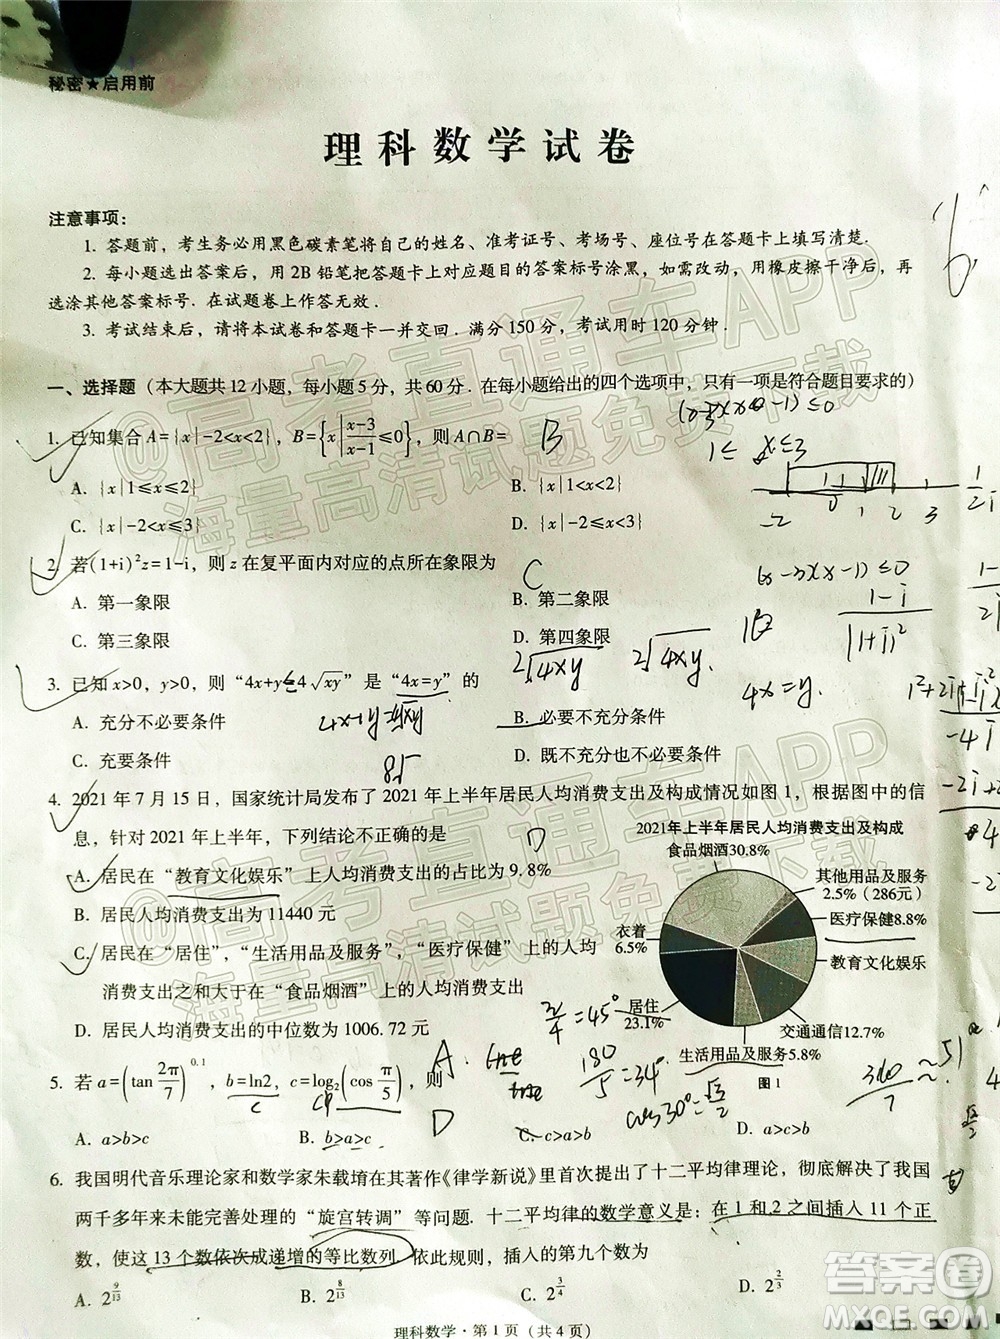 秘密★启用前
理科数学试卷
注意事项：
1. 答题前，考生务必用黑色碳素笔将自己的姓名、准考证号、考场号、座位号在答题卡上填写清楚.
2. 每小题选出答案后，用 2B 铅笔把答题卡上对应题目的答案标号涂黑，如需改动，用橡皮擦干净后，再
选涂其他答案标号. 在试题卷上作答无效.
3. 考试结束后，请将本试卷和答题卡一并交回. 满分 150 分，考试用时 120 分钟.
一、选择题（本大题共 12 小题，每小题 5 分，共 60 分. 在每小题给出的四个选项中，只有一项是符合题目要求的）
1. 已知集合 A={x|-2<x<2}，B={x|(x-3)/(x-1)≤0}，则 A∩B= B
A. {x|1≤x≤2}
B. {x|1<x<2}
C. {x|-2<x≤3}
D. {x|-2≤x<3}
1≤x≤3
-2 0 1 2 3
2. 若(1+i)²z=1-i，则 z 在复平面内对应的点所在象限为 C
A. 第一象限
B. 第二象限
C. 第三象限
D. 第四象限
(x-3)(x-1)≤0
3. 已知 x>0，y>0，则“4x+y≤4√xy”是“4x=y”的
A. 充分不必要条件
B. 必要不充分条件
C. 充要条件
D. 既不充分也不必要条件
2√4xy 2√4xy
4x=y.
4. 2021 年 7 月 15 日，国家统计局发布了 2021 年上半年居民人均消费支出及构成情况如图 1，根据图中的信
息，针对 2021 年上半年，下列结论不正确的是 D
A. 居民在“教育文化娱乐”上人均消费支出的占比为 9.8%
B. 居民人均消费支出为 11440 元
C. 居民在“居住”，“生活用品及服务”，“医疗保健”上的人均
消费支出之和大于在“食品烟酒”上的人均消费支出
D. 居民人均消费支出的中位数为 1006.72 元
2021年上半年居民人均消费支出及构成
食品烟酒30.8%
其他用品及服务
2.5%（286元）
医疗保健8.8%
教育文化娱乐
交通通信12.7%
生活用品及服务5.8%
居住
23.1%
衣着
6.5%
图 1
5. 若 a=(tan 2π/7)^0.1，b=ln2，c=log₂(cos π/5)，则 D
A. a>b>c
B. b>a>c
C. c>a>b
D. a>c>b
cos30°=√3/2
6. 我国明代音乐理论家和数学家朱载堉在其著作《律学新说》里首次提出了十二平均律理论，彻底解决了我国
两千多年来未能完善处理的“旋宫转调”等问题. 十二平均律的数学意义是：在 1 和 2 之间插入 11 个正
数，使这 13 个数依次成递增的等比数列. 依此规则，插入的第九个数为
A. 2^(9/13)
B. 2^(8/13)
C. 2^(3/4)
D. 2^(2/3)
理科数学·第 1 页（共 4 页）
@高考直通车APP
海量高清试题免费下载
@高考直通车APP
海量高清试题免费下载
答案圈
MXQE.COM